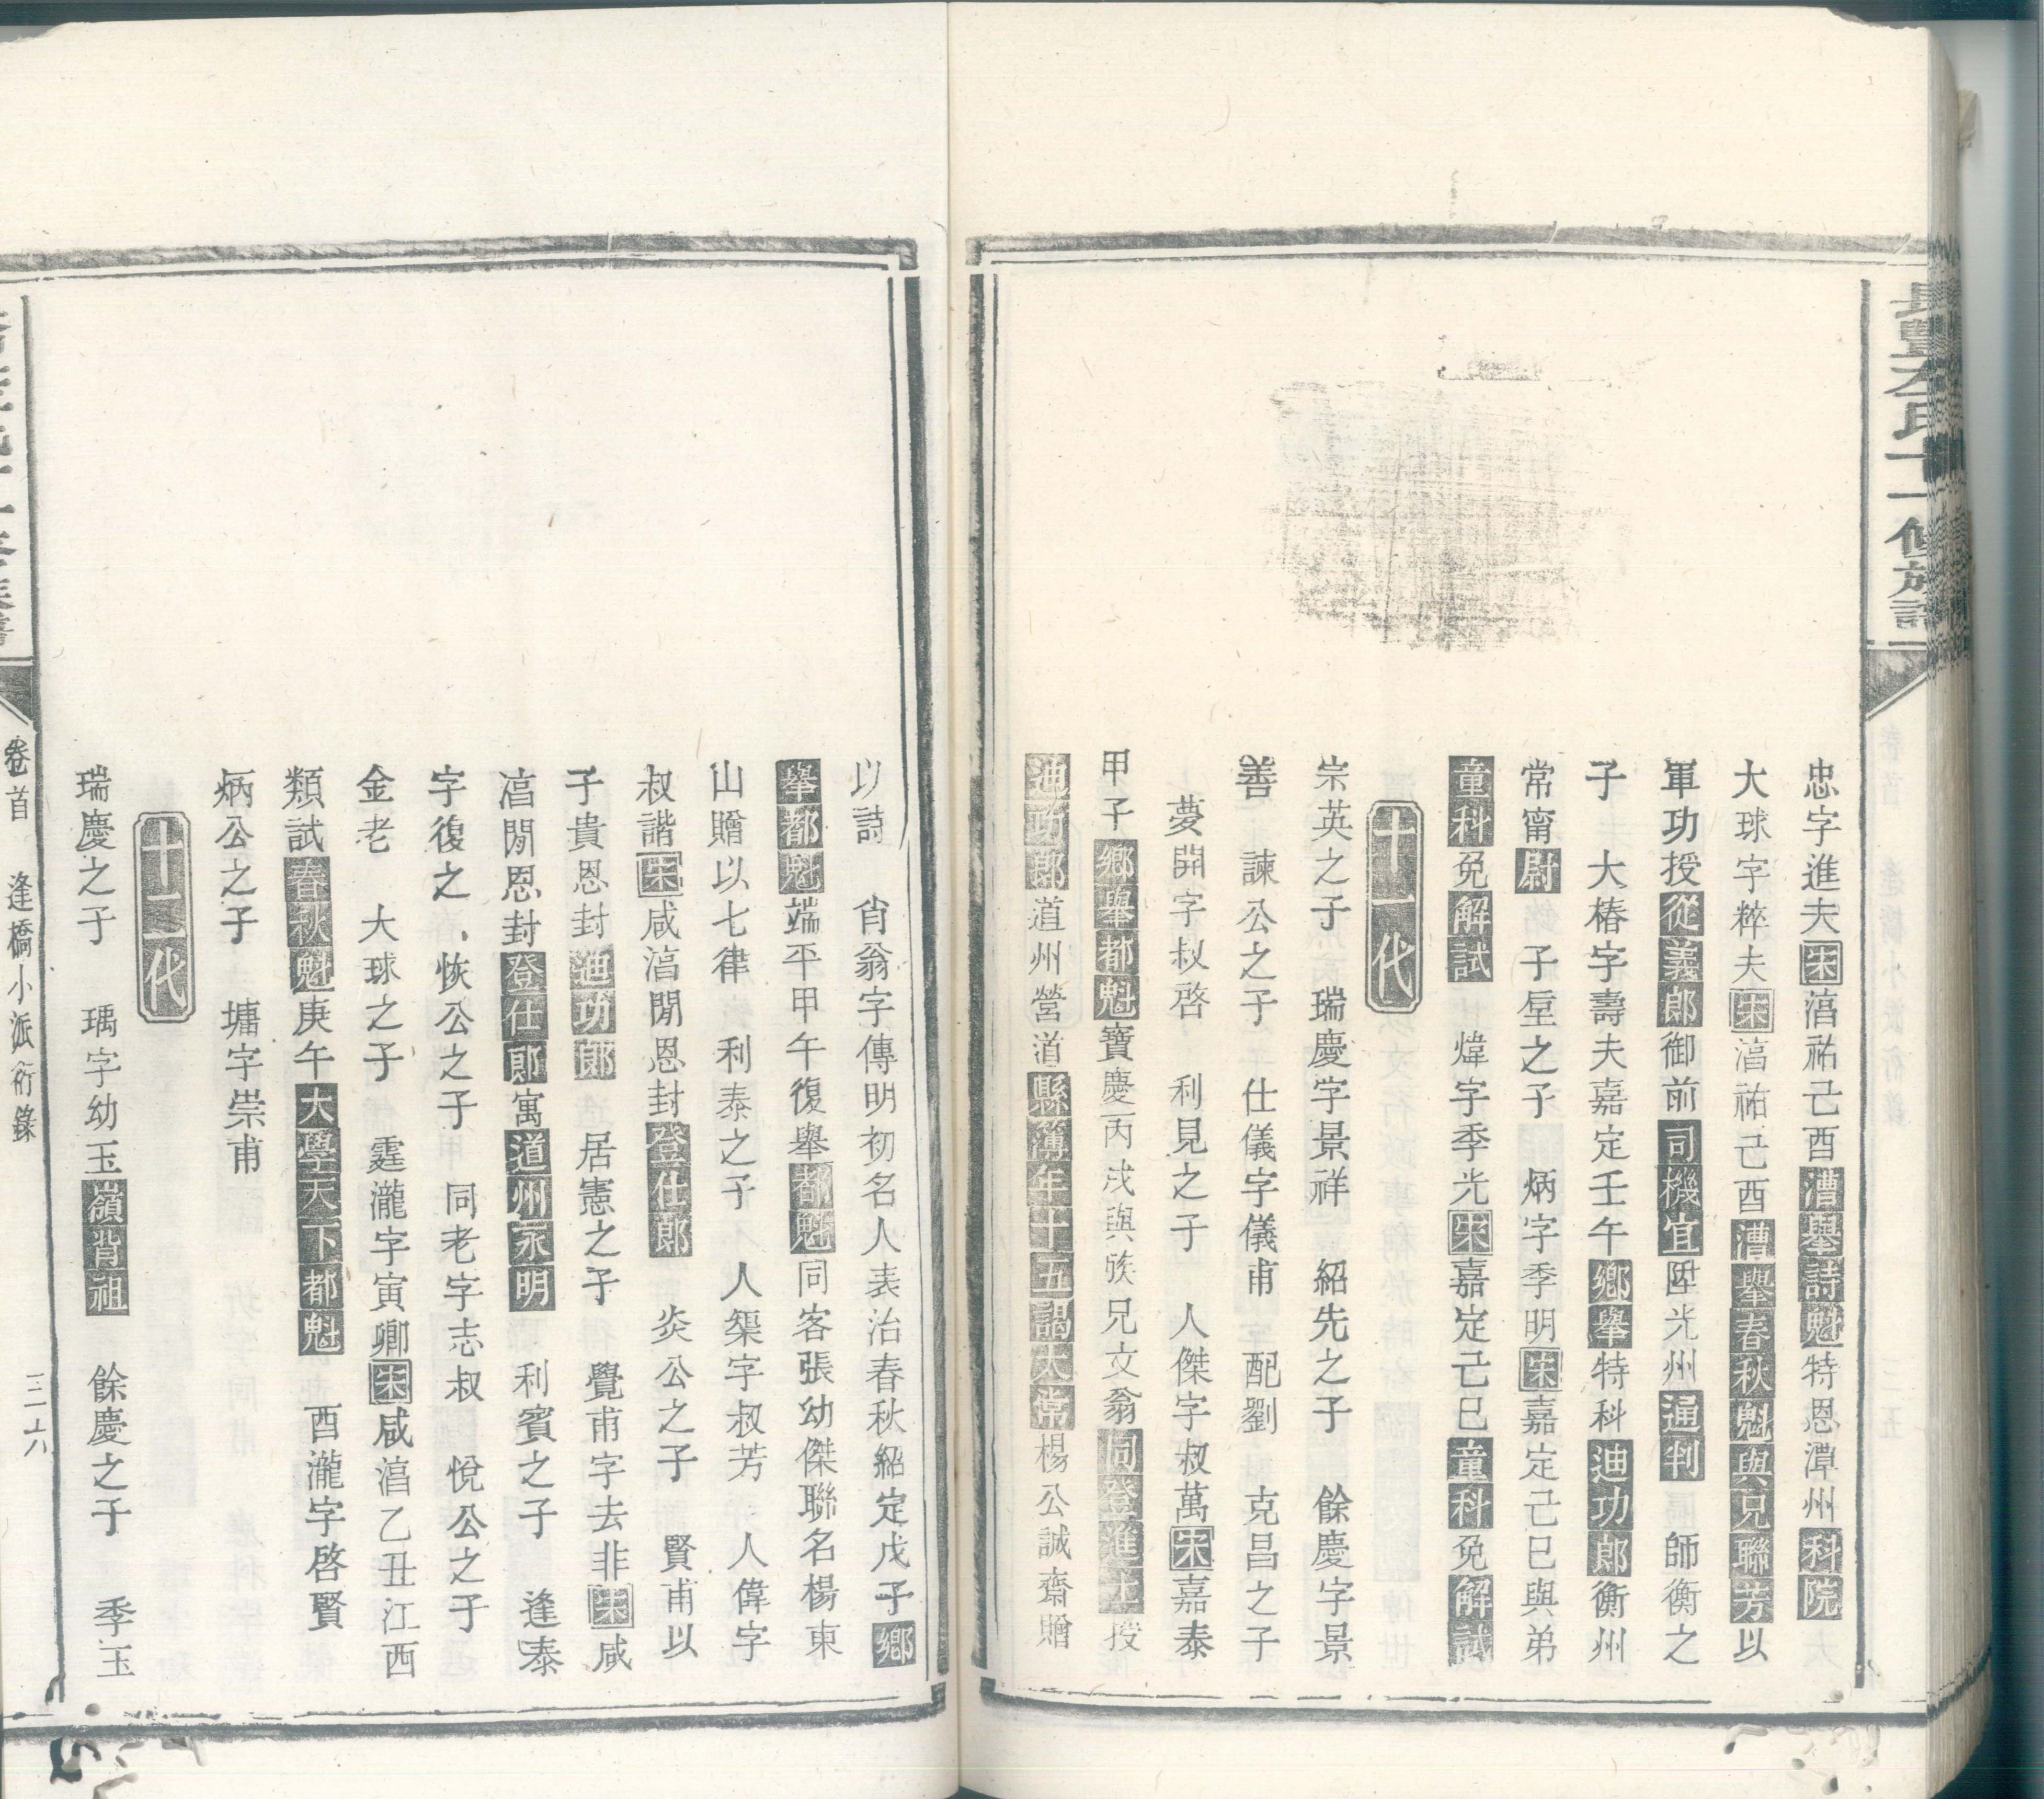 忠字進夫宋淳祐己酉漕舉詩魁特恩潭州科院
大球字粹夫宋淳祐己酉漕舉春秋魁與兄聯芳以
軍功授從義郎御前司機宜陞光州通判 師衡之
子 大椿字壽夫嘉定壬午鄉舉特科迪功郎衡州
常甯尉 子垕之子 炳字季明宋嘉定己巳與弟
童科免解試 煒字季光宋嘉定己巳童科免解試
十一代
宗英之子 瑞慶字景祥 紹先之子 餘慶字景
善 諫公之子 仕儀字儀甫 配劉 克昌之子
夢開字叔啓 利見之子 人傑字叔萬宋嘉泰
甲子鄉舉都魁寶慶丙戌與族兄文翁同登進士授
迪功郎道州營道縣簿年十五謁太常楊公誠齋贈
以詩 肖翁字傳明初名人表治春秋紹定戊子鄉
舉都魁端平甲午復舉都魁同客張幼傑聯名楊東
山贈以七律 利泰之子 人榘字叔芳 人偉字
叔諧宋咸淳閒恩封登仕郎 炎公之子 賢甫以
子貴恩封迪功郎 居憲之子 覺甫字去非宋咸
淳閒恩封登仕郎寓道州永明 利賓之子 逢泰
字復之 恢公之子 同老字志叔 悅公之子
金老 大球之子 霆瀧字寅卿宋咸淳乙丑江西
類試春秋魁庚午大學天下都魁 酉瀧字啓賢
炳公之子 墉字崇甫
十二代
瑞慶之子 瑀字幼玉嶺背祖 餘慶之子 季玉
卷首 逢橋小派衍錄 三六